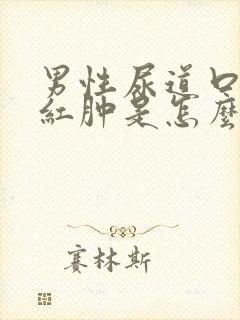 男性尿道口
紅肿是怎麼
赛林斯